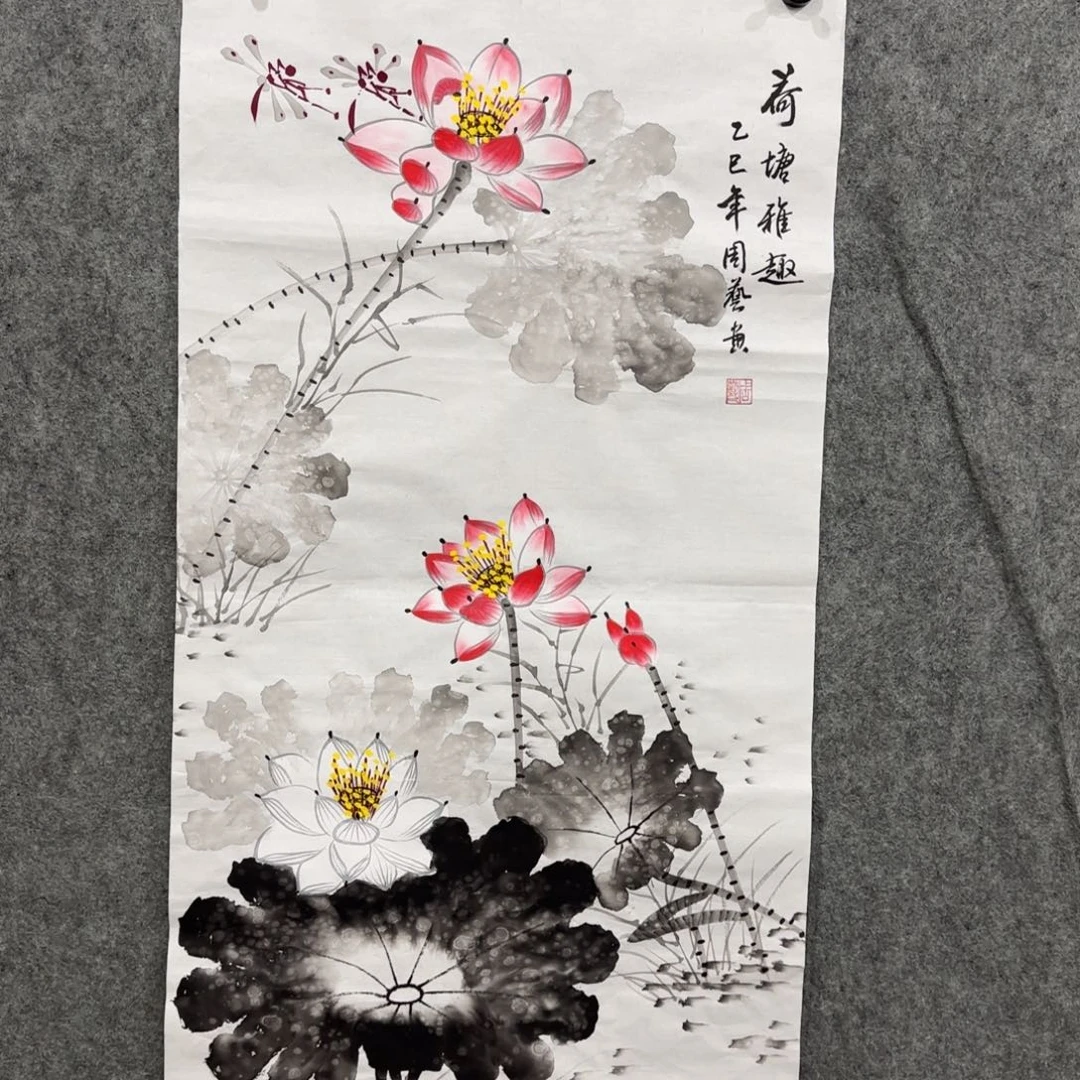 荷塘雅趣
乙巳年周艺画